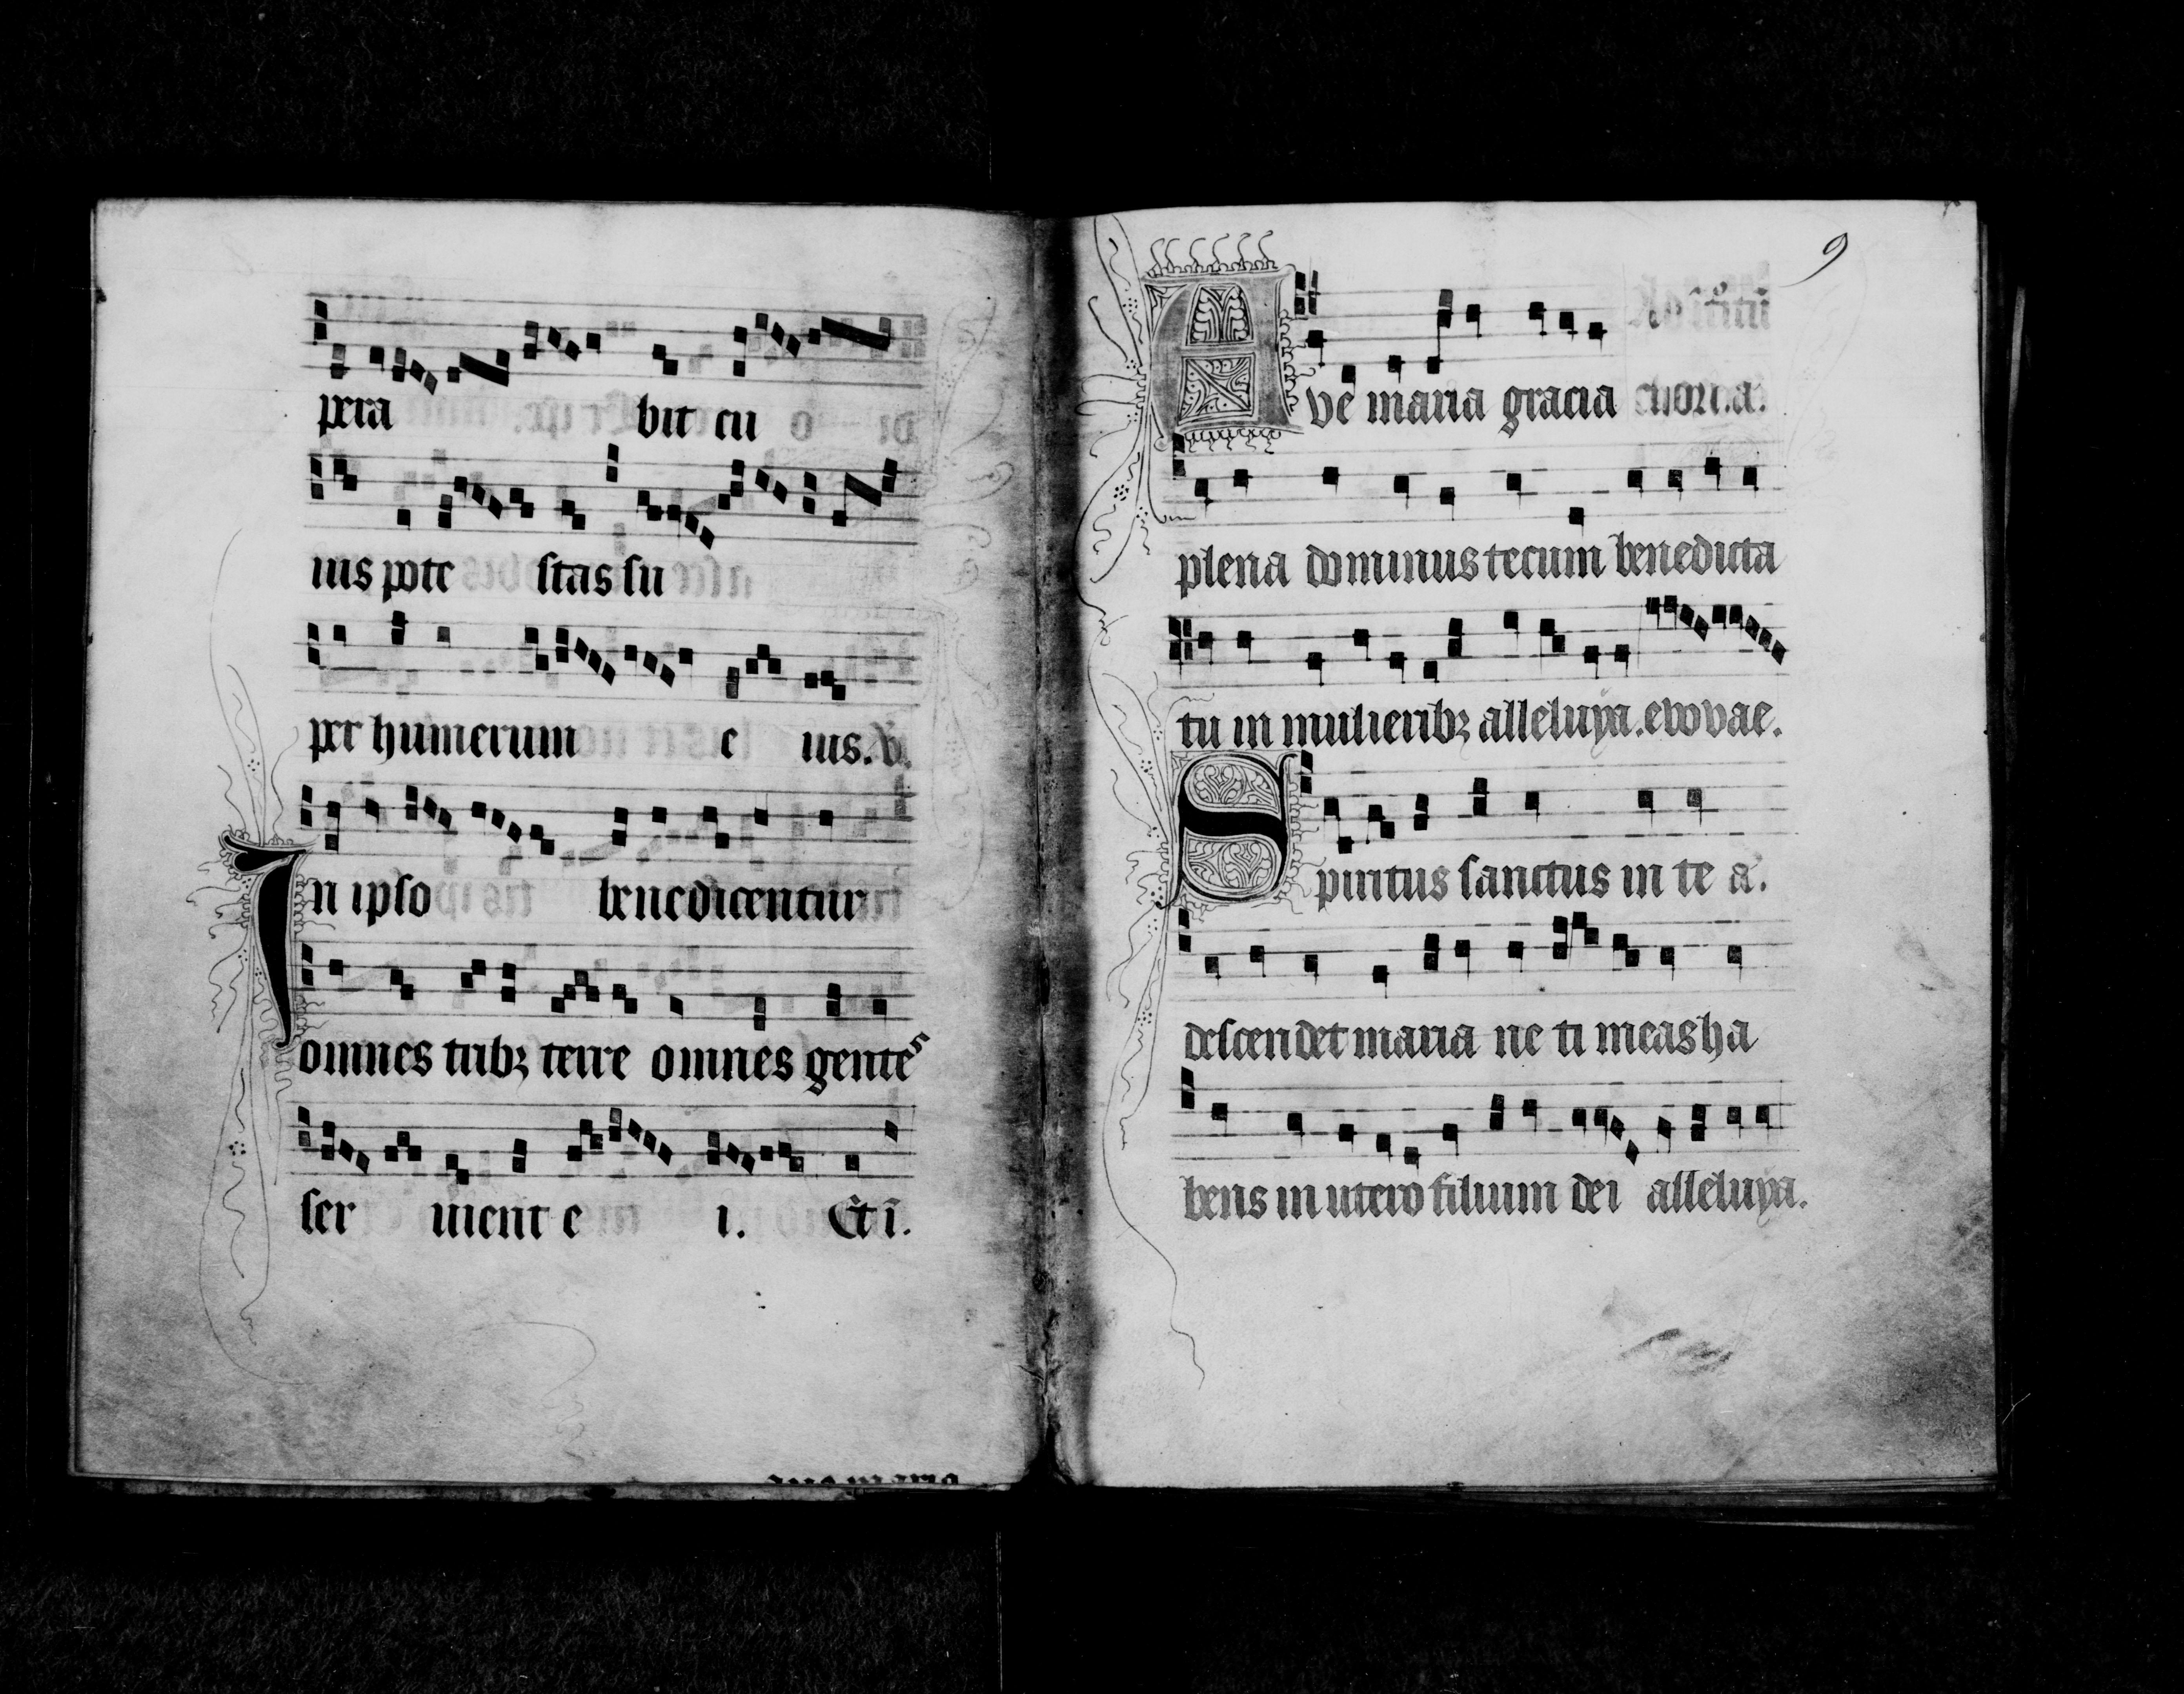 pera bit cu
ius pote stas su
per humerum e ius. V.
In ipso benedicentur
omnes tribꝫ terre omnes gentes
ser uient e i. Et i.
9
Ave maria gracia
plena dominus tecum benedicta
tu in mulieribꝫ alleluya. evovae.
Spiritus sanctus in te a.
descendet maria ne timeas ha
bens in utero filium dei alleluya.